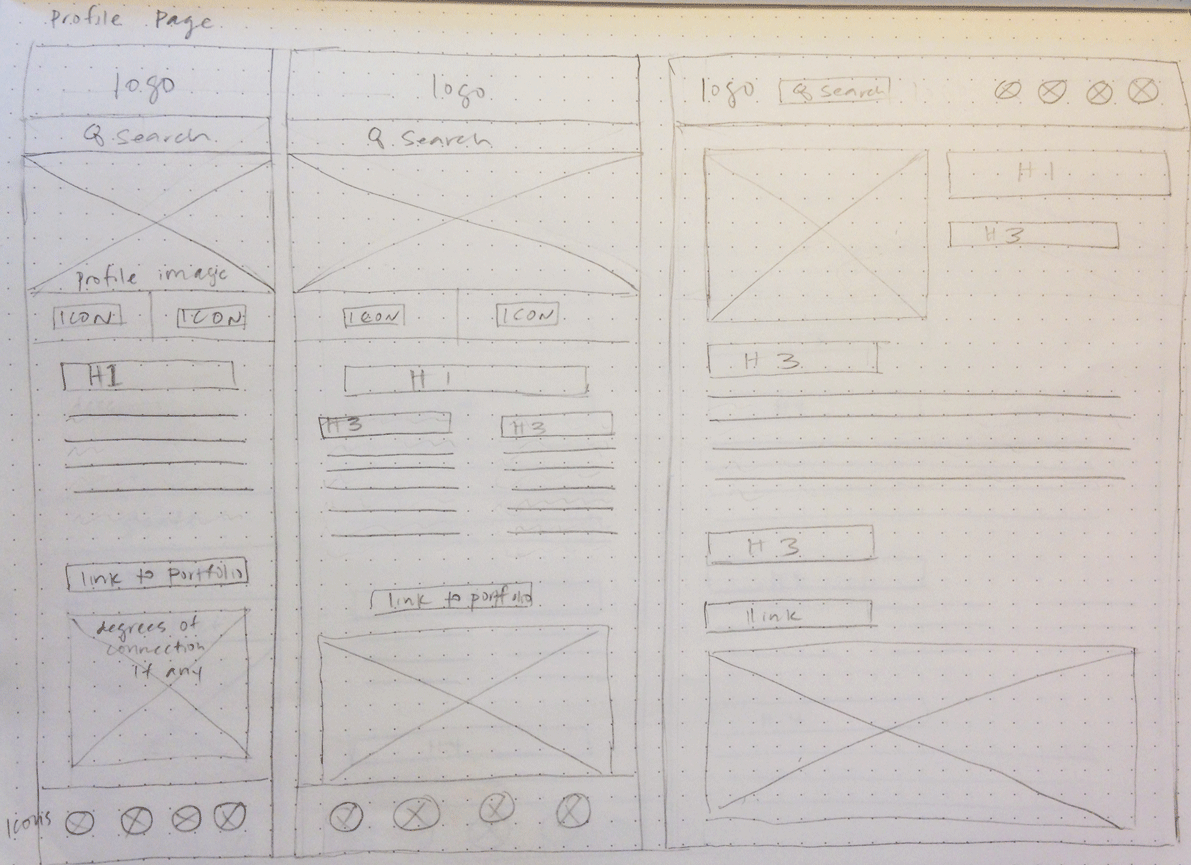 Profile Page
logo
Search
Profile image
ICON ICON
H1
link to portfolio
degrees of
connection
if any
Icons
logo
Search
ICON ICON
H1
H3 H3
link to portfolio
logo Search
H1
H3
H3
H3
link